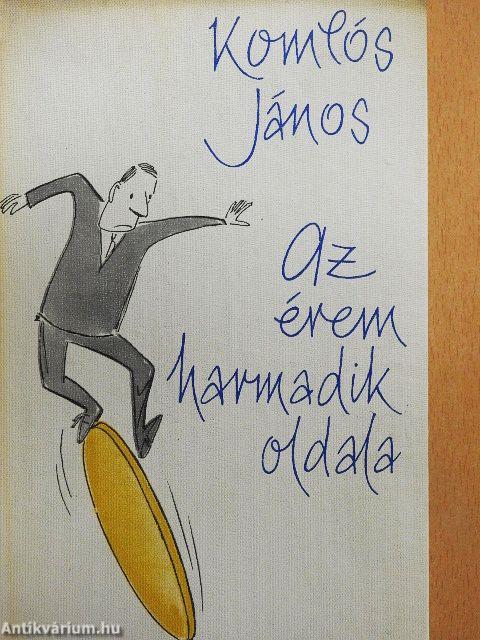 Komlós
János
Az
érem
harmadik
oldala
Antikvárium.hu